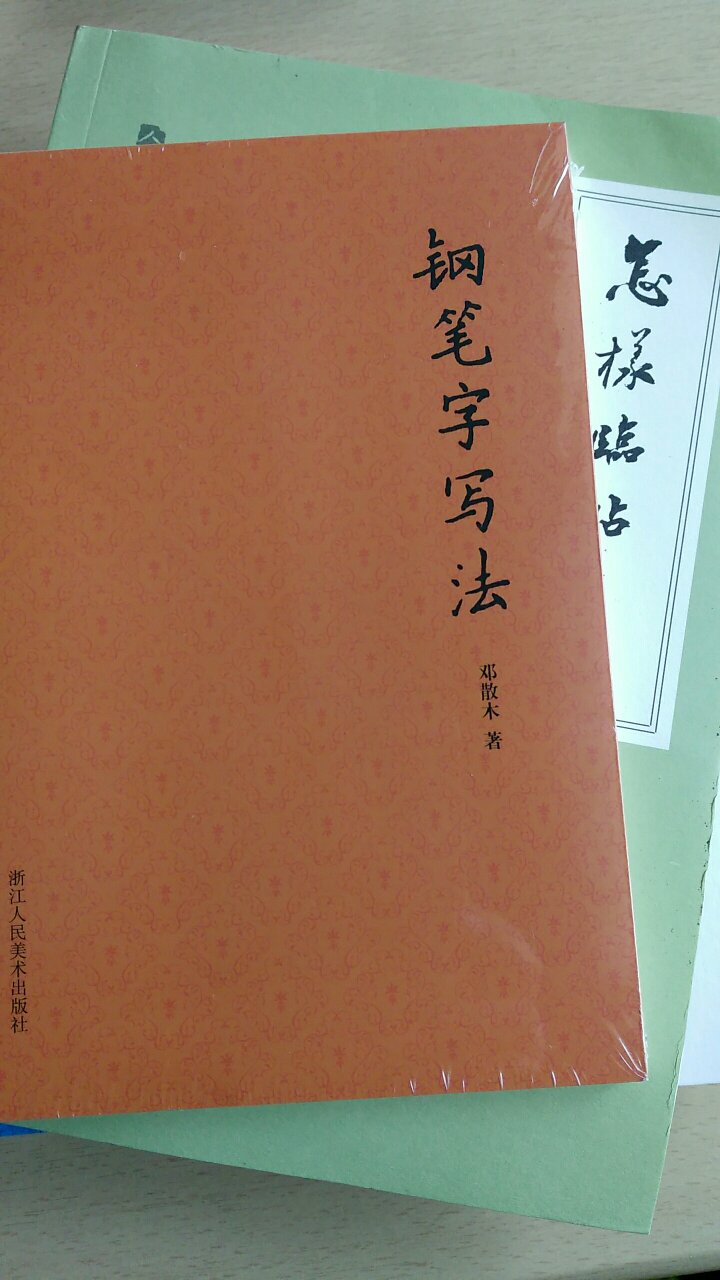 钢笔字写法
邓散木 著
浙江人民美术出版社
怎樣臨帖